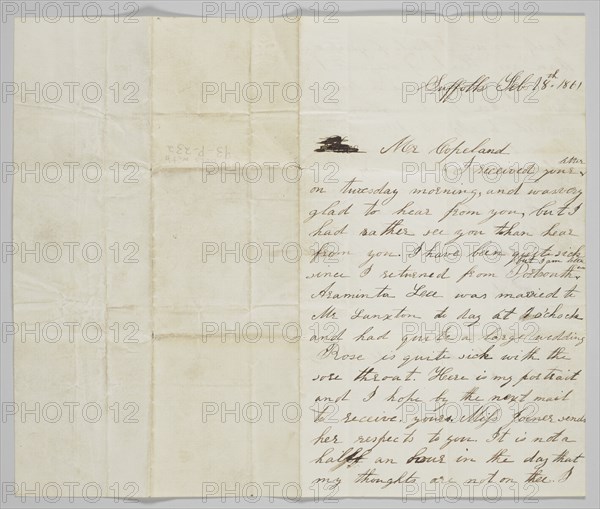 Suffolk Feb 18th 1861
Mr Copeland
I received your letter
on tuesday morning, and was very
glad to hear from you, but I
had rather see you than hear
from you. I have been quite sick
but I am better now
since I returned from
Araminta Lee was married to
Mr to day at o'clock
and had quite a large wedding
Rose is quite sick with the
sore throat. Here is my portrait
and I hope by the next mail
to receive yours. Miss Joiner sends
her respects to you. It is not a
half an hour in the day that
my thoughts are not on thee. I
PHOTO12